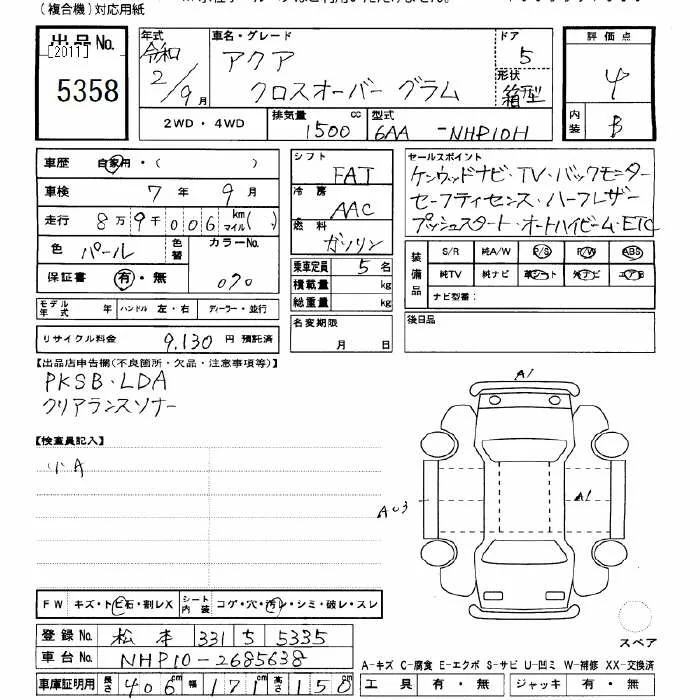 （複合機）対応用紙
出品No.
[2011]
5358
年式
令和
2/9月
車名・グレード
アクア
クロスオーバー グラム
ドア
5
形状
箱型
評価点
4
内装
B
2WD・4WD
排気量
1500
cc
型式
6AA -NHP10H
車歴 自家用・( )
車検 7年 9月
走行 8万9千006 km マイル( )
色 パール
色替
カラーNo.
070
保証書 有・無
モデル年式 年 ハンドル 左・右 ディーラー・並行
リサイクル料金 9,130円 預託済
シフト
FAT
冷房
AAC
燃料
ガソリン
乗車定員 5名
積載量 kg
総重量 kg
名変期限
月 日
セールスポイント
ケンウッドナビ・TV・バックモニター
セーフティセンス・ハーフレザー
プッシュスタート・オートハイビーム・ETC
装備品
S/R 純A/W P/S P/W ABS
純TV 純ナビ 革シート 外ナビ エアB
ナビ型番：
後日品
【出品店申告欄(不良箇所・欠品・注意事項等)】
PKSB・LDA
クリアランスソナー
【検査員記入】
小A
A1
A1
FW キズ・トビ石・割レX
シート内装 コゲ・穴・汚レ・シミ・破レ・スレ
登録No. 松本 331 5 5335
車台No. NHP10-2685638
車庫証明用 長さ 406 幅 171 高さ 150
スペア
A-キズ C-腐食 E-エクボ S-サビ U-凹ミ W-補修 XX-交換済
工具 有・無 ジャッキ 有・無